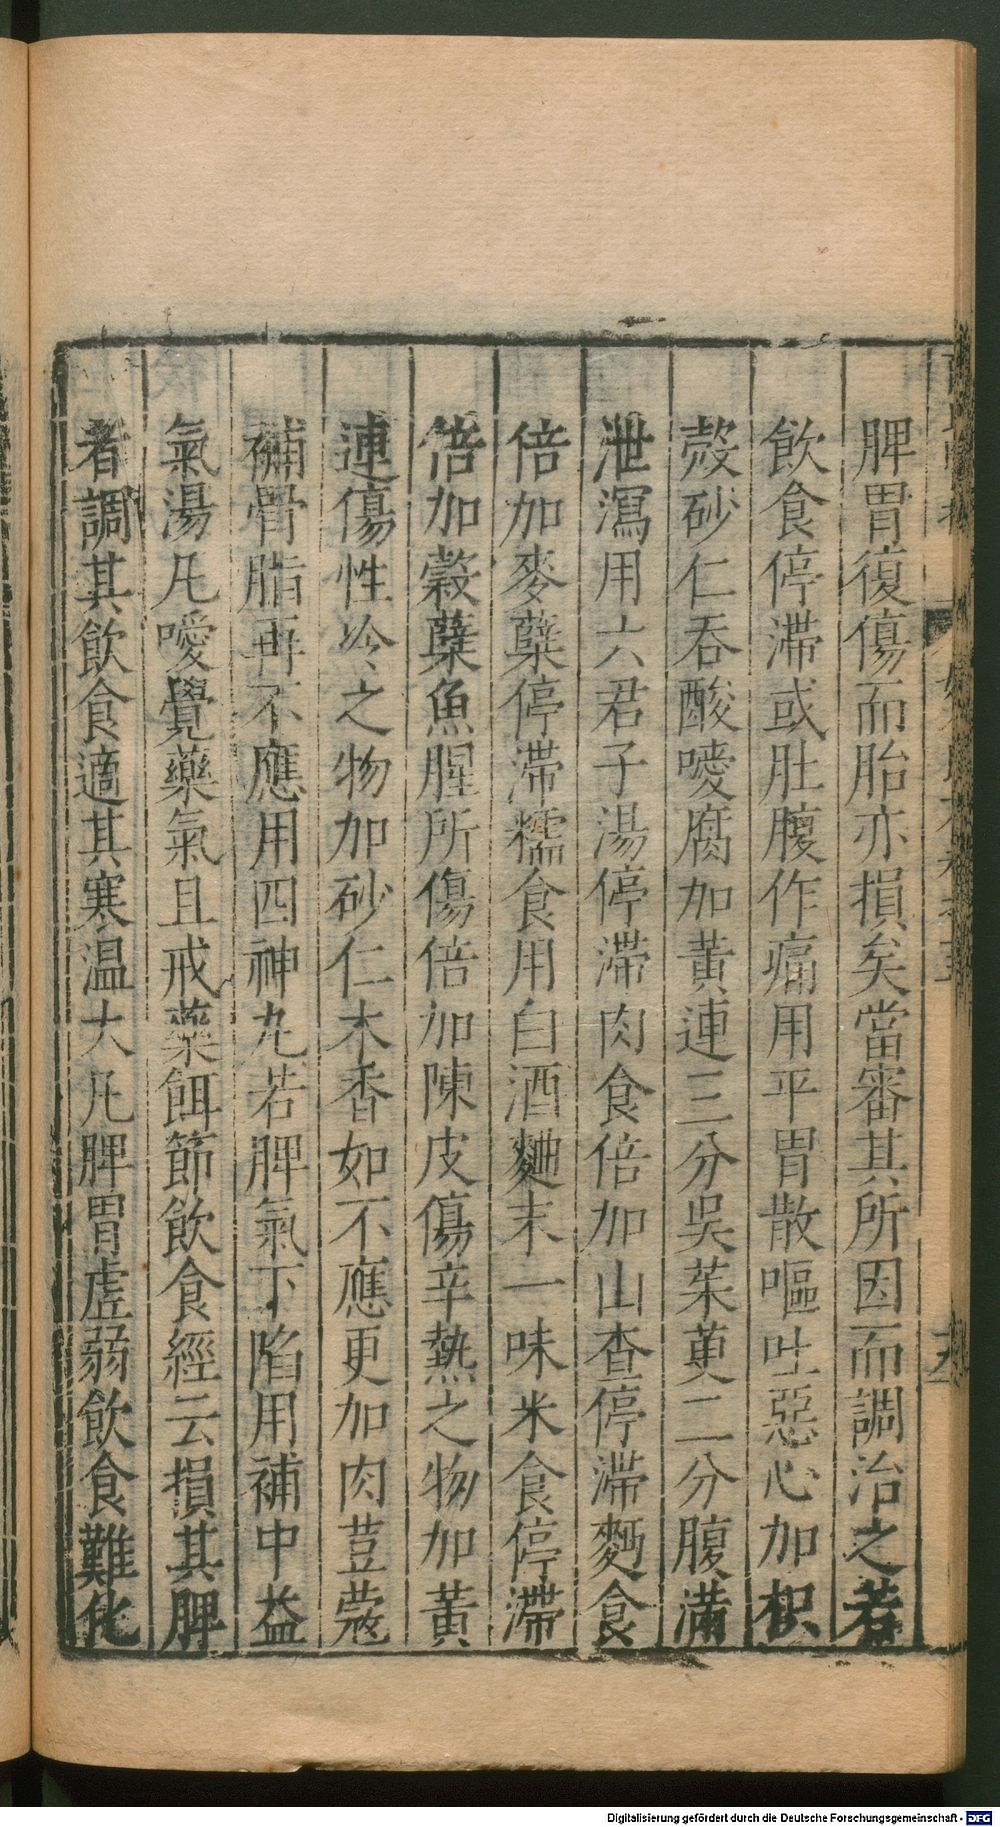 脾胃復傷而胎亦損矣當審其所因而調治之若
飲食停滯或肚腹作痛用平胃散嘔吐惡心加枳
殼砂仁吞酸噯腐加黃連三分吳茱萸二分腹滿
泄瀉用六君子湯停滯肉食倍加山查停滯麪食
倍加麥蘖停滯糯食用白酒麯末一味米食停滯
倍加穀蘖魚腥所傷倍加陳皮傷辛熱之物加黃
連傷性冷之物加砂仁木香如不應更加肉荳蔻
補骨脂再不應用四神丸若脾氣下陷用補中益
氣湯凡噯覺藥氣且戒藥餌節飲食經云損其脾
者調其飲食適其寒溫大凡脾胃虛弱飲食難化
Digitalisierung gefördert durch die Deutsche Forschungsgemeinschaft - DFG